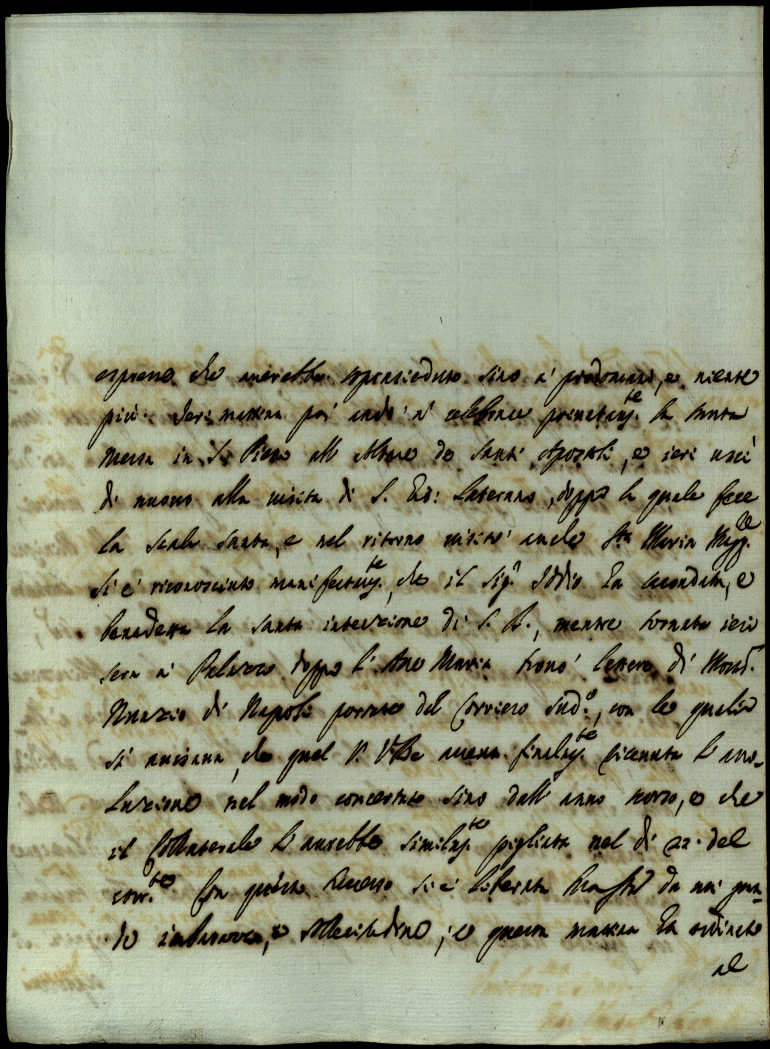 espresso che averebbe soprasieduto sino a' posdomani, e niente
più. Ieri mattina poi andò a' celebrare privatam.te la santa
Messa in S. Pietro all'Altare de Santi Apostoli, e ieri uscì
di nuovo alla visita di S. Gio: Laterano, doppo la quale fece
la scala santa, e nel ritorno visitò anche S.ta Maria Magg.re
Si è riconosciuto manifestam.te, che il Sig.r Iddio ha secondata, e
benedetta la santa intenzione di S. B., mentre tornata ieri
sera a' Palazzo doppo l'Ave Maria trovò lettere di Mons.r
Nunzio di Napoli portate dal Corriero sud.o, con le quali
si avisava, che quel V. Rè aveva finalm.te ricevuta l'asso-
luzione nel modo concertato sino dall'anno scorso, e che
il Collaterale l'averebbe similm.te pigliata nel dì 22. del
corr.te Con questo successo si è liberata da un gran-
de imbarazzo, e sollecitudine; e questa mattina ha ordinato
al